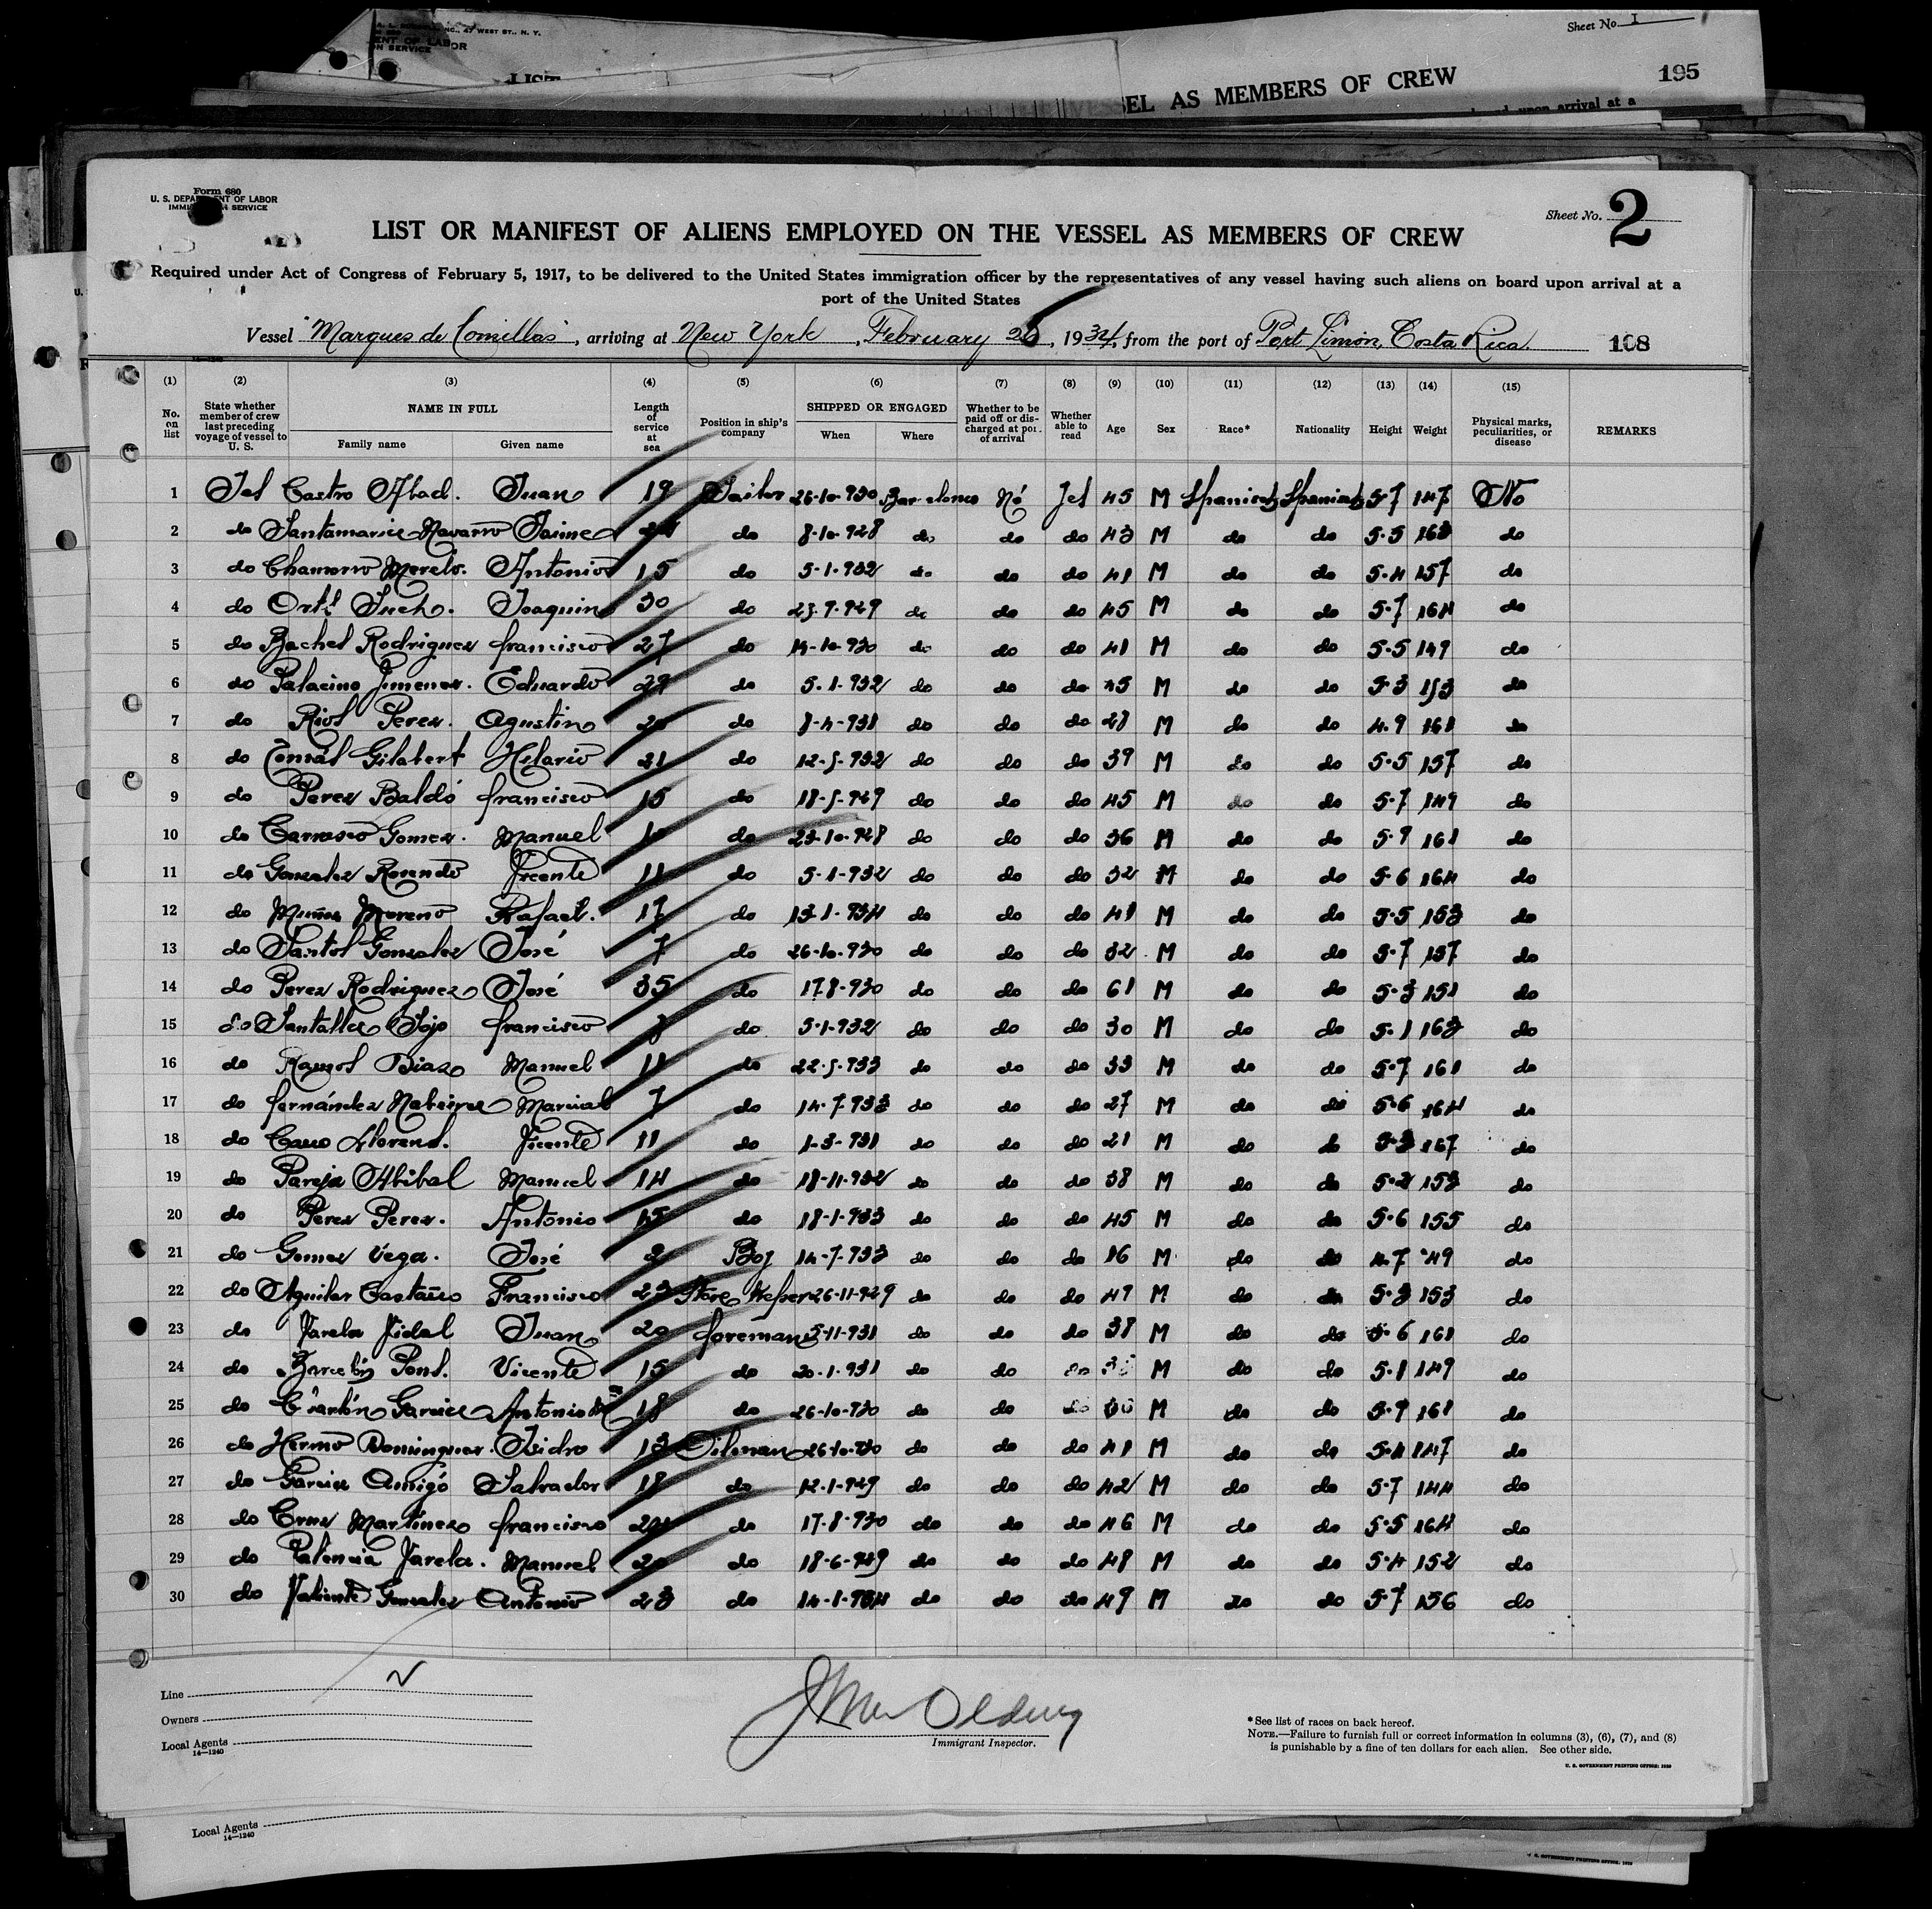 INC., 47 WEST ST., N. Y.
Sheet No. 1
LIST
EL AS MEMBERS OF CREW
195
upon arrival at a
Form 680
U. S. DEPARTMENT OF LABOR
SERVICE
Sheet No. 2
LIST OR MANIFEST OF ALIENS EMPLOYED ON THE VESSEL AS MEMBERS OF CREW
Required under Act of Congress of February 5, 1917, to be delivered to the United States immigration officer by the representatives of any vessel having such aliens on board upon arrival at a
port of the United States
Vessel "Marques de Comillas", arriving at New York, February 26, 1934, from the port of Port Limon, Costa Rica. 108
(1) (2) (3) (4) (5) (6) (7) (8) (9) (10) (11) (12) (13) (14) (15)
No. on list State whether member of crew last preceding voyage of vessel to U. S. NAME IN FULL Family name Given name Length of service at sea Position in ship's company SHIPPED OR ENGAGED When Where Whether to be paid off or discharged at port of arrival Whether able to read Age Sex Race* Nationality Height Weight Physical marks, peculiarities, or disease REMARKS
1 Castro Abad. Juan 19 Sailor 26-10-930 Barcelona Nó 45 M Spanish Spanish 5-7 147 No
2 do Santamaria Navarro Jaime do 8-10-928 do do do 43 M do do 5-5 163 do
3 do Chamorro Antonio 15 do 5-1-932 do do do 41 M do do 5-4 157 do
4 do Joaquin 30 do do do do 45 M do do 5-7 164 do
5 do Rodriguez francisco 27 do 14-10-930 do do do 41 M do do 5-5 149 do
6 do Palacino Jimenez. Eduardo 29 do 5-1-932 do do do 45 M do do 5-3 153 do
7 do Rios Perez. Agustin do 8-4-931 do do do 28 M do do 4-9 161 do
8 do Gilabert Hilario 21 do 12-5-932 do do do 39 M do do 5-5 157 do
9 do Perez Baldó francisco 15 do 18-5-929 do do do 45 M do do 5-7 149 do
10 do Carrasco Gomez. Manuel do 23-10-928 do do do 36 M do do 5-9 161 do
11 do Gonzalez Rosendo Vicente 11 do 5-1-932 do do do 32 M do do 5-6 164 do
12 do Muñoz Moreno Rafael. 17 do 13-1-934 do do do 41 M do do 5-5 153 do
13 do Santos Gonzalez José 7 do 26-10-930 do do do 32 M do do 5-7 157 do
14 do Perez Rodriguez José 35 do 17-8-930 do do do 61 M do do 5-3 151 do
15 do francisco do 5-1-932 do do do 30 M do do 5-1 163 do
16 do Ramos Diaz Manuel 11 do 22-5-933 do do do 33 M do do 5-7 161 do
17 do fernández Marcial 7 do 14-7-933 do do do 27 M do do 5-6 164 do
18 do Llorens. Vicente 11 do 1-3-931 do do do 21 M do do 167 do
19 do Pareja Manuel 14 do 18-11-932 do do do 38 M do do 5-2 153 do
20 do Perez Perez. Antonio 15 do 18-1-933 do do do 45 M do do 5-6 155 do
21 do Gomez Vega. José 2 Boy 14-7-933 do do do 16 M do do 4-7 do
22 do Aguilar Castaño Francisco 23 Store Keeper 26-11-929 do do do 47 M do do 5-3 153 do
23 do Varela Vidal Juan 20 foreman 5-11-931 do do do 38 M do do 5-6 161 do
24 do Pons. Vicente 15 do 20-1-931 do do do M do do 5-1 149 do
25 do Garcia Antonio 18 do 26-10-930 do do do M do do 5-9 161 do
26 do Hermo Dominguez. Isidro 13 Oilman 26-10-930 do do do 41 M do do 5-4 147 do
27 do Garcia Amigó Salvador 18 do 12-1-929 do do do 42 M do do 5-7 144 do
28 do Cruz Martinez francisco do 17-8-930 do do do 46 M do do 5-5 164 do
29 do Palencia Varela. Manuel 20 do 18-6-929 do do do 48 M do do 5-4 152 do
30 do Valiente Gonzalez Antonio 23 do 14-1-934 do do do 49 M do do 5-7 156 do
Line
Owners
Local Agents
14—1240
Immigrant Inspector.
*See list of races on back hereof.
NOTE.—Failure to furnish full or correct information in columns (3), (6), (7), and (8)
is punishable by a fine of ten dollars for each alien. See other side.
U. S. GOVERNMENT PRINTING OFFICE: 1930
Local Agents
14—1240